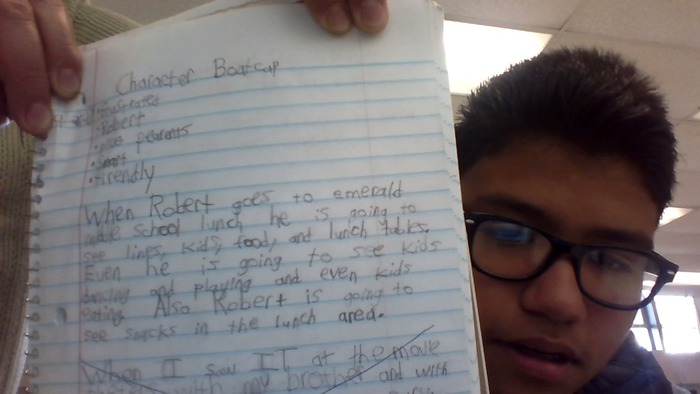 Character Boatcup
• frustrated
• Robert
• parents
• smart
• firendly
When Robert goes to emerald
midle school lunch he is going to
see lines, kids, food, and lunch tables.
Even he is going to see kids
dancing and playing and even kids
eating. Also Robert is going to
see snacks in the lunch area.
When I saw IT at the movie
with my brother and with